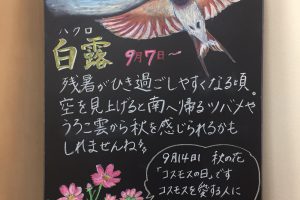 ハクロ
白露 9月7日〜
残暑がひき過ごしやすくなる頃。
空を見上げると南へ帰るツバメや
うろこ雲から秋を感じられるかも
しれませんね
9月14日 秋の花
「コスモスの日」です
コスモスを愛する人に